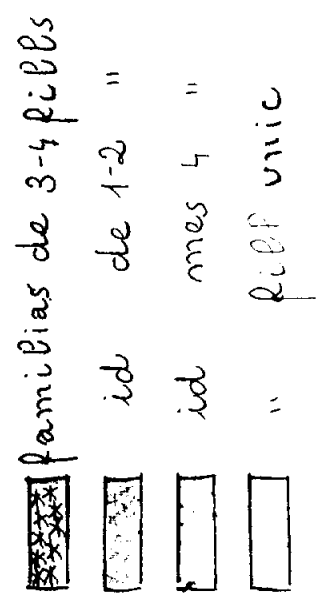 familias de 3-4 fills
id de 1-2 "
id mes 4 "
" fill unic